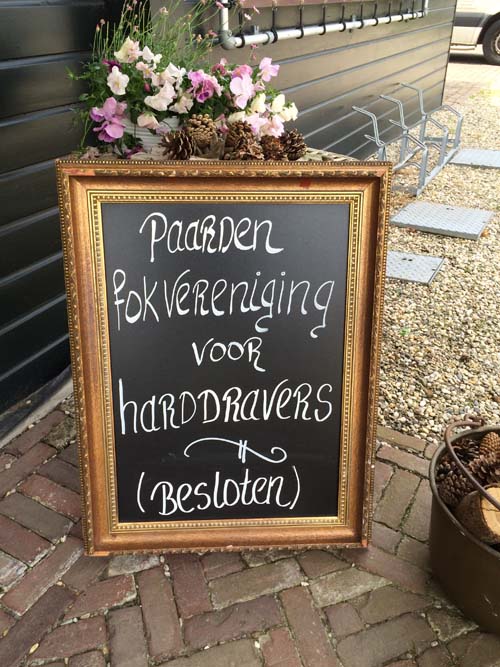 Paarden
fokvereniging
voor
harddravers
(Besloten)